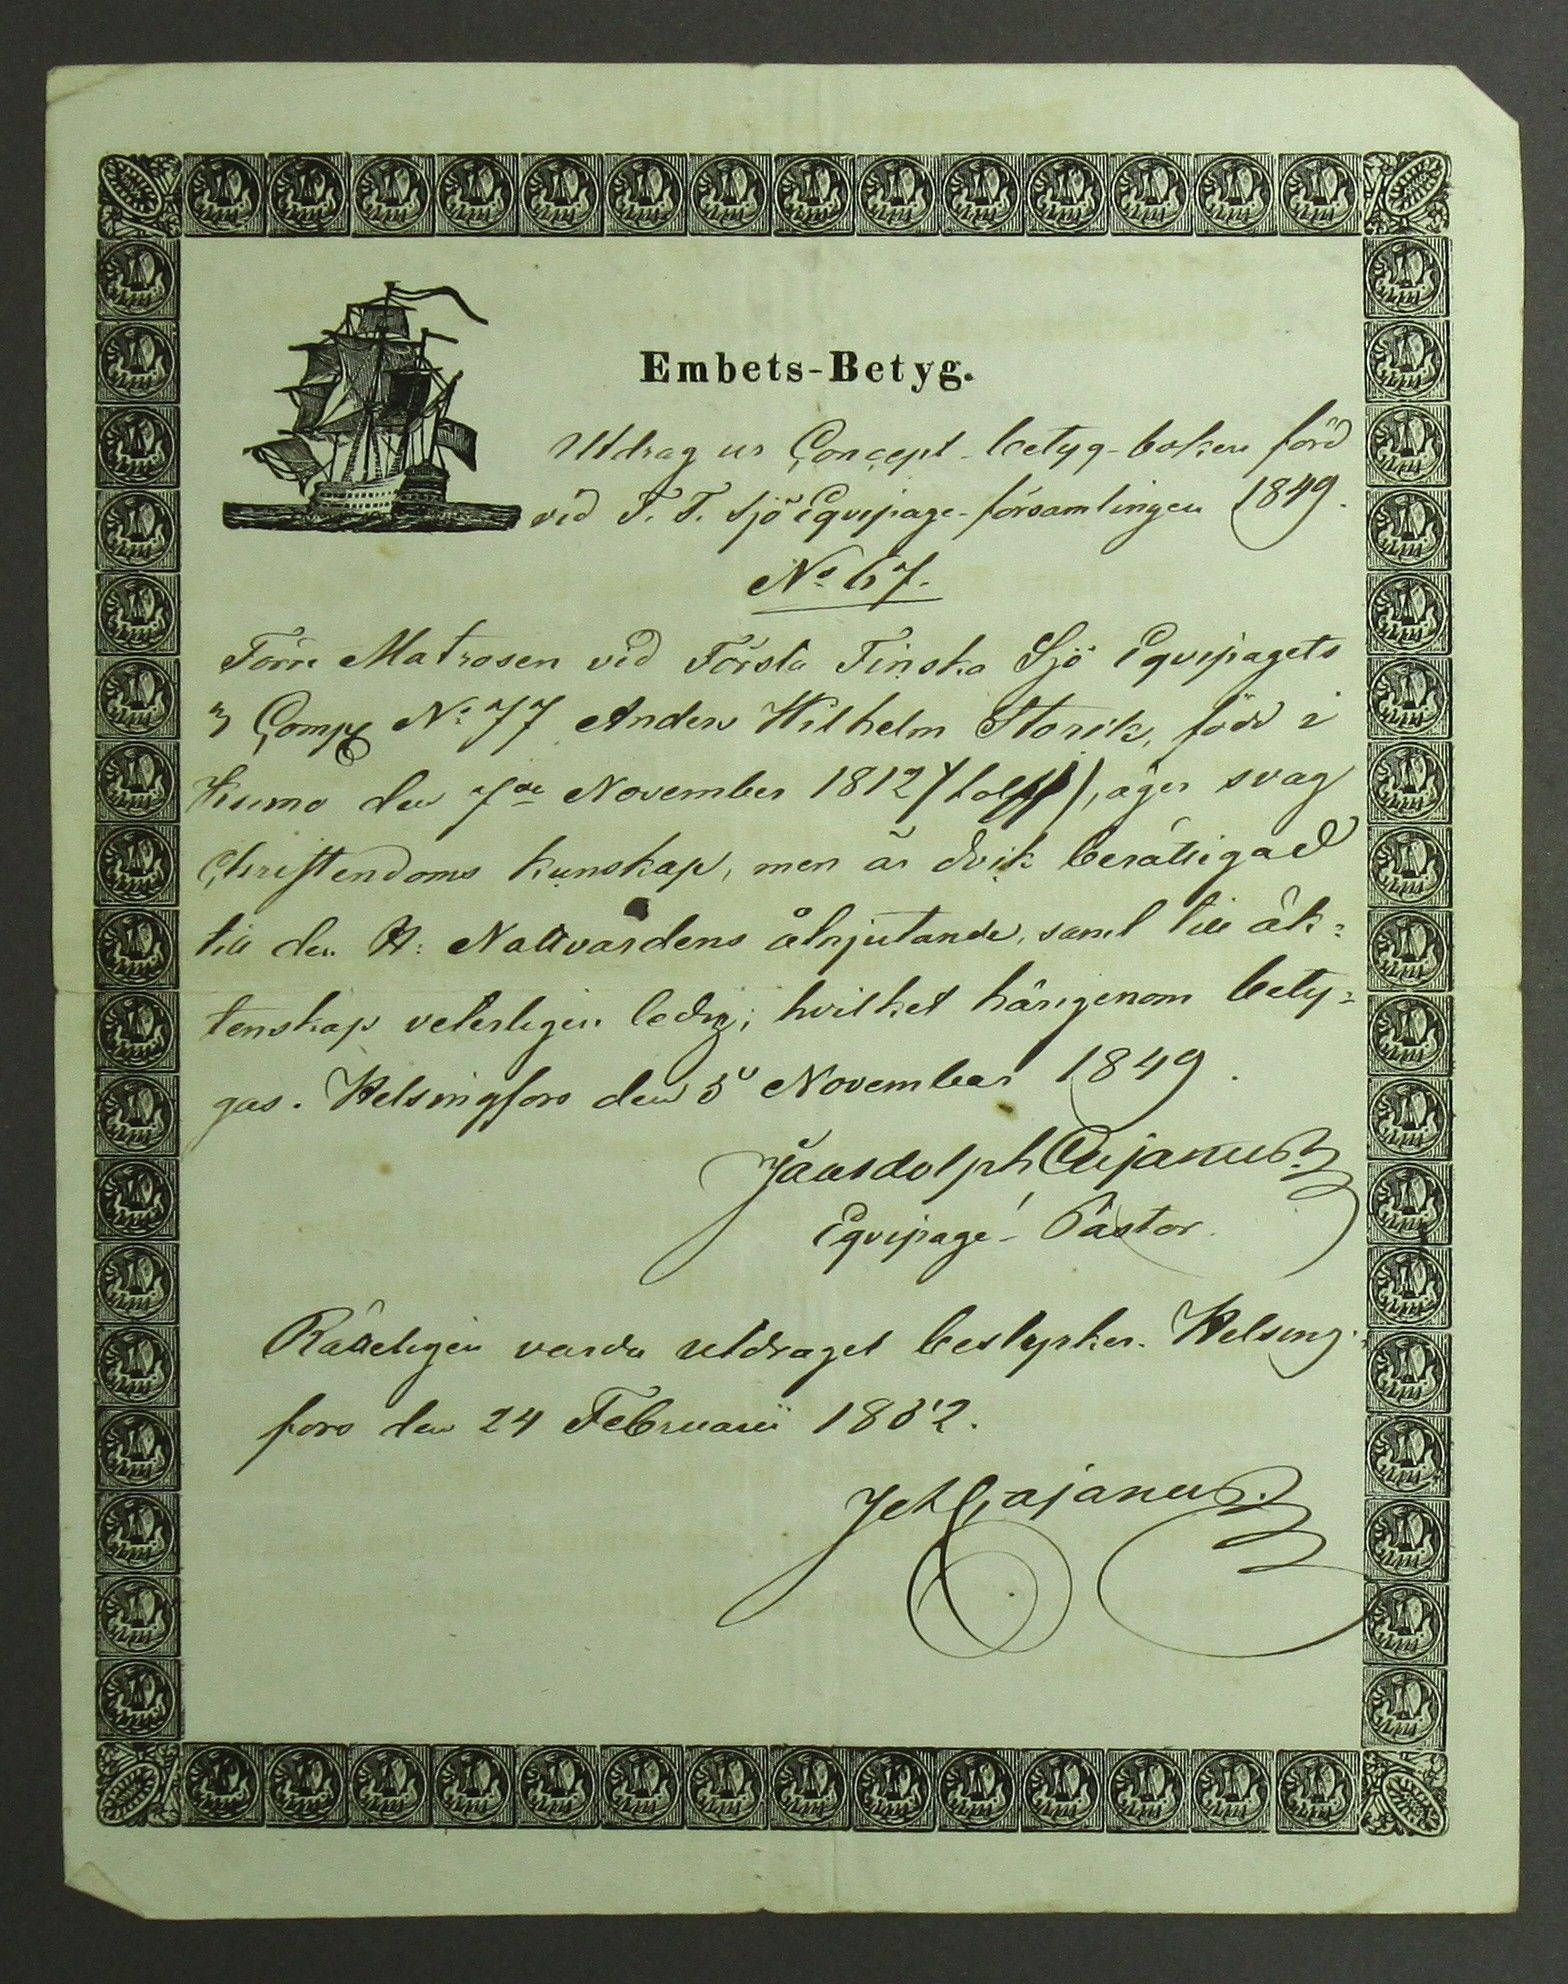 Embets-Betyg.
Utdrag ur Concept-betyg-boken förd
vid F. F. Sjö Equipage-församlingen 1849.
No 67.
Förre Matrosen vid Första Finska Sjö Equipagets
3 Comp No 77 Anders Wilhelm Storik, född i
Kumo den 7de November 1812 (tolf), äger svag
Christendoms kunskap, men är dock berättigad
till den H: Nattvardens åtnjutande, samt till äk=
tenskap veterligen ledig; hvilket härigenom bety=
gas. Helsingfors den 5 November 1849.
Cajanus.
Equipage-Pastor.
Rätteligen vara utdraget bestyrker. Helsing=
fors den 24 Februarii 1852.
Cajanus.